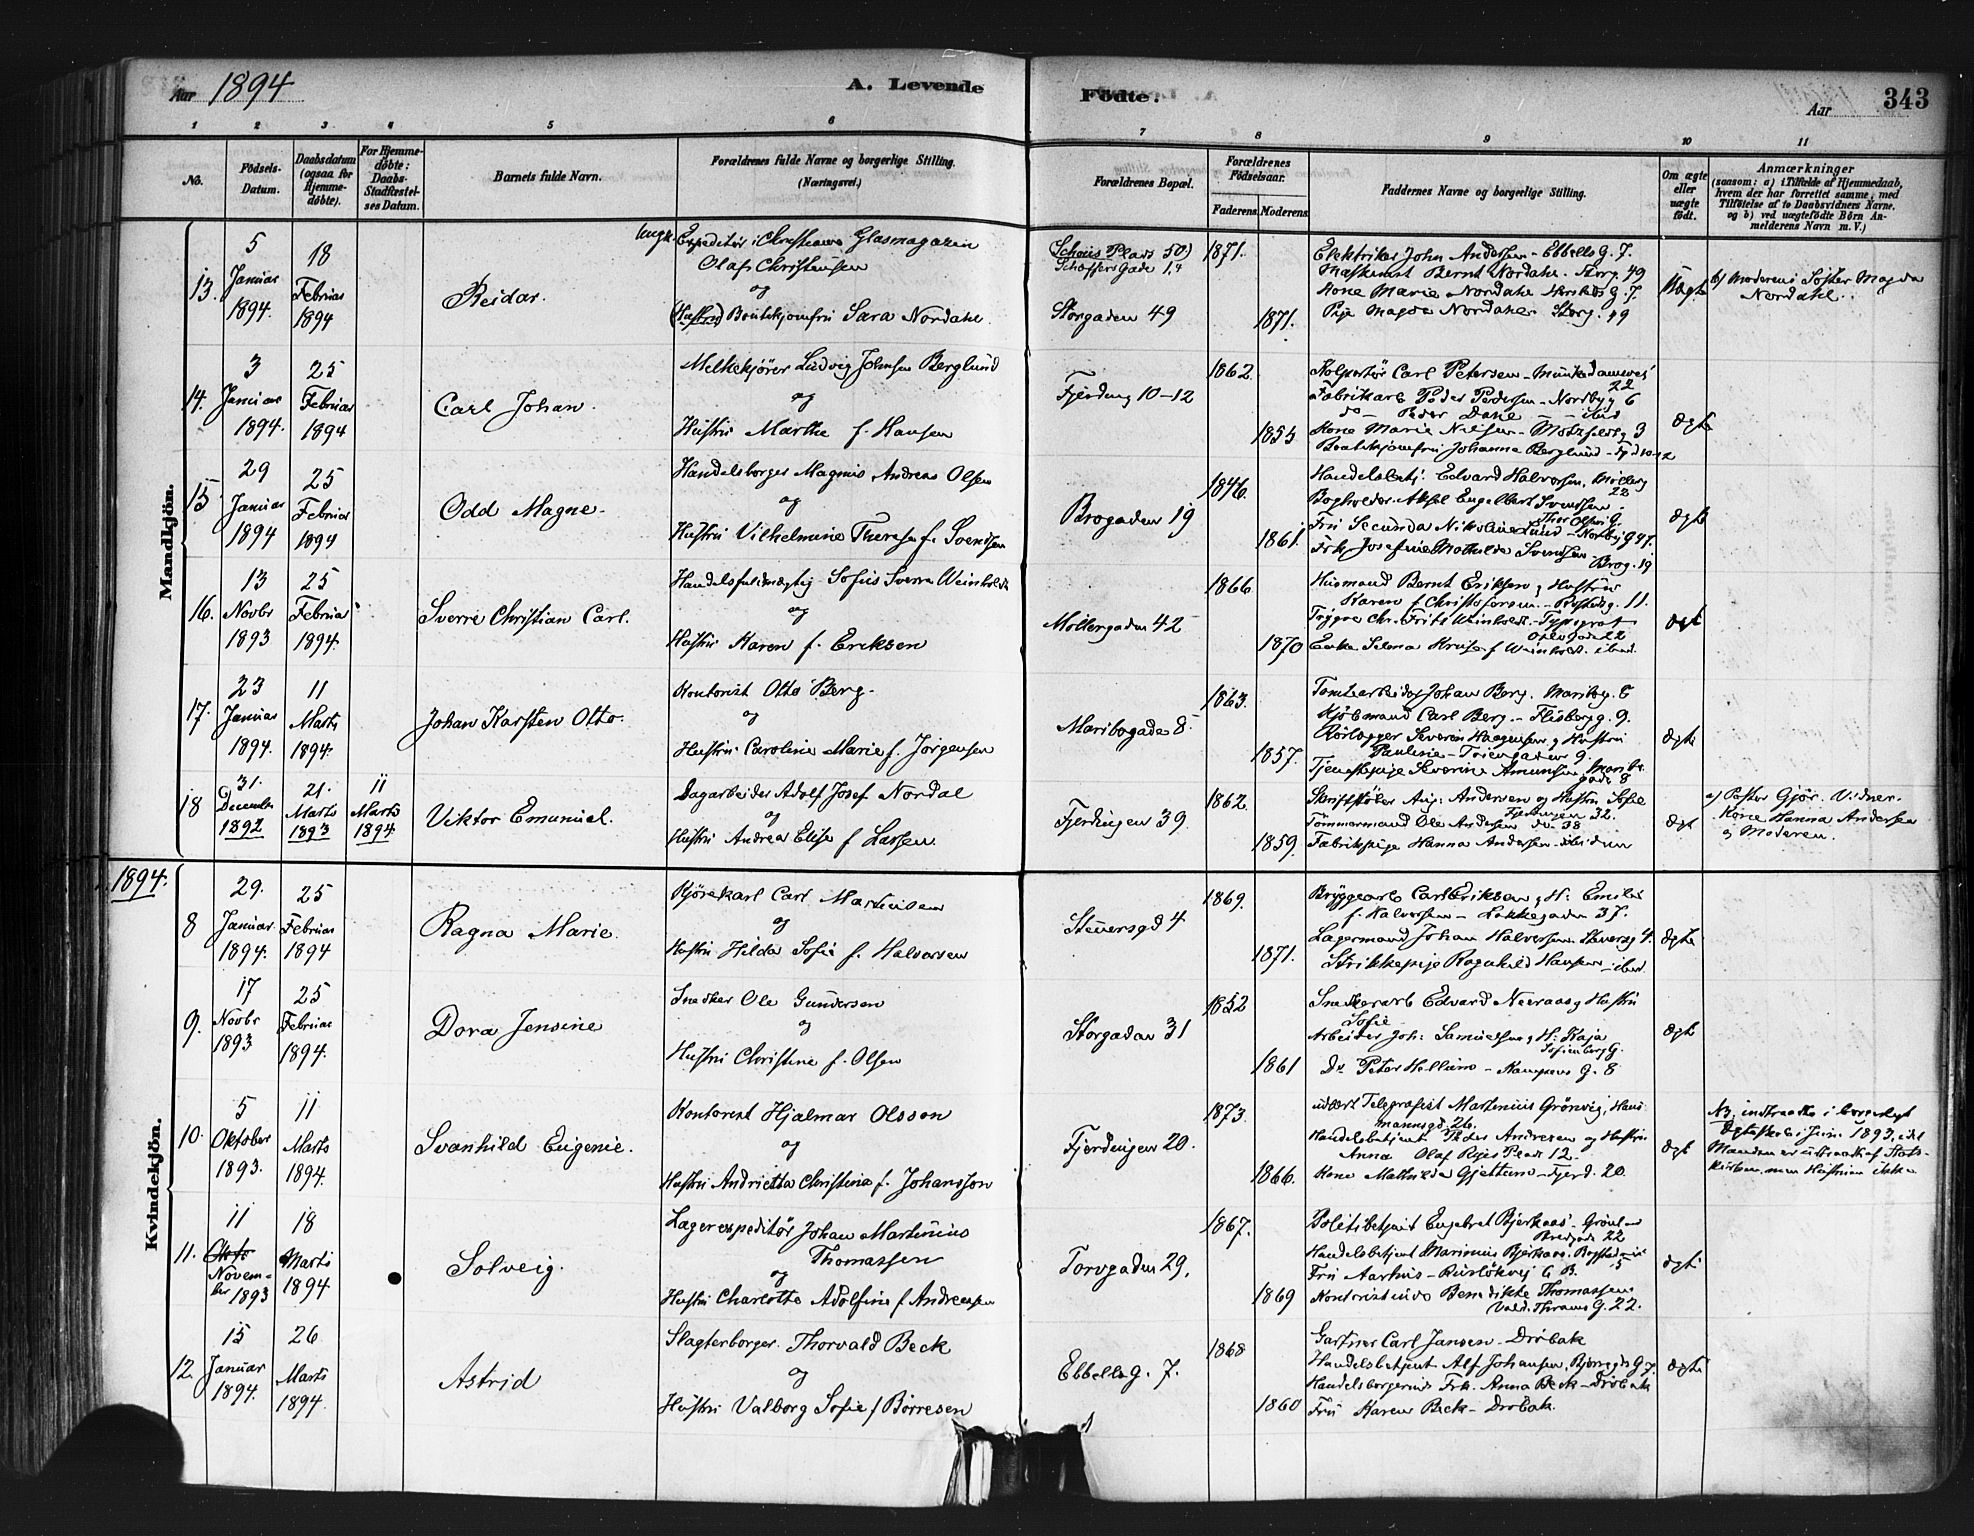 Aar 1894
A. Levende
Fødte.
Aar
343
1 2 3 4 5 6 7 8 9 10 11
No.
Fødsels-
Datum.
Daabsdatum
(ogsaa for
Hjemme-
døbte).
For Hjemme-
døbte:
Daabs-
Stadfæstel-
ses Datum.
Barnets fulde Navn.
Forældrenes fulde Navne og borgerlige Stilling.
(Næringsvei.)
Forældrenes Bopæl.
Forældrenes
Fødselsaar.
Faderens.
Moderens.
Faddernes Navne og borgerlige Stilling.
Om ægte
eller
uægte
født.
Anmærkninger
(saasom: a) i Tilfælde af Hjemmedaab,
hvem der har forrettet samme, med
Tilføielse af to Daabsvidners Navne,
og b) ved uægtefødte Børn An-
melderens Navn m. V.)
Mandkjøn.
13.
5
Januar
1894.
18
Februar
1894
Reidar.
Ungk. Expeditør i Christiania Glasmagazin
Olaf Christensen
og
(Hustru) Boutikjomfru Sara Nordahl.
Schous Plads 50)
Schæffers Gade 14
Storgaden 49
1871.
1871.
Elektriker John Andersen - Ebbells G. 7.
Maskinist Bernt Nordahl. Storg. 49
Kone Marie Nordahl
Pige Magda Nordahl. Storg. 49
Uægte
b) Moderens Søster Magda
Nordahl.
14.
3
Januar
1894.
25
Februar
1894
Carl Johan.
Melkekjører Ludvig Johnsen Berglund
og
Hustru Marthe f. Hansen
Fjerding 10-12
1862.
1855
Kolportør Carl Petersen - Munkedamsvei
22
Fabrikarb Peder Pedersen - Nordbyg 6
do - Peder Dahl - ibid
Kone Marie Nilsen - Motzfeldtsg 3
Boutikjomfru Johanna Berglund - Fjd 10-12
Ægte
15
29
Januar
1894
25
Februar
1894
Odd Magne.
Handelsborger Magnus Andreas Olsen
og
Hustru Vilhelmine Therese f. Svendsen
Brogaden 19
1846.
1861.
Handelsbetj: Edvard Halvorsen, Møllerg
28
Bogholder Aksel Engelbert Svendsen -
Thor Olsens G.
Fru Secunda Nikoline Lund - Norbyg 47.
Frk Josefine Mathilde Svendsen
Brog. 19
Ægte
16.
13
Novbr
1893
25
Februar
1894.
Sverre Christian Carl.
Handelsfuldmægtig Sofus Sverre Weinholdt
og
Hustru Karen f. Eriksen
Møllergaden 42
1866
1870
Husmand Bernt Eriksen og Hustru
Karen f Christofersen
Chr. Frits Weinholdt - Typograf
Enke Selma Kruse f Weinholdt. ibid.
Ægt
17.
23
Januar
1894.
11
Marts
1894.
Johan Karsten Otto.
Kontorist Otto Berg.
og
Hustru Caroline Marie f. Jørgensen
Maribogaden 8.
1863.
1857.
Tomtearbeider Johan Berg. Maribog. 8
Kjøbmand Carl Berg. - Flisberg g. 9.
Rørlægger Severin Haagensen og Hustru
Pauline - Toiengaden 9.
Tjenestepige Severine Amundsen, Maribo
gade 8
Ægte
18
31.
December
1892
21.
Marts
1893
11
Marts
1894
Viktor Emanuel.
Dagarbeider Adolf Josef Nordal
og
Hustru Andrea Elise f Larsen.
Fjerdingen 39.
1862.
1859.
Skriftstøber Aug: Andersen og Hustru Sofie
Fjerdingen 32.
Tømmermand Ole Andersen do 38
Fabrikpige Hanna Andersen - ibidem
Ægt
a) Pastor Gjør. Vidner.
Kone Hanna Andersen
og Moderen.
1894.
Kvindekjøn.
8
29.
Januar
1894.
25
Februar
1894
Ragna Marie.
Kjørekarl Carl Martinsen
og
Hustru Hilda Sofie f. Halvorsen
Steversgd 4
1869.
1871.
Bryggearb Carl Eriksen og H: Emilie
f. Halvorsen - Løkkegaden 37.
Lagermand Johan Halvorsen. Steversg 4.
Strikkepige Ragnhild Hansen - ibid.
Ægte
9.
17
Novbr
1893
25
Februar
1894.
Dora Jensine
Snedker Ole Gundersen
og
Hustru Christine f. Olsen
Storgaden 31
1852
1861
Snekkerarb Edvard Neeraas og Hustru
Sofie
Arbeider Joh: Samuelsen og H: Kaja
Sofienberg G.
Do Peter Hellum - Kampens G. 8
Ægte
10.
5
Oktober
1893.
11
Marts
1894.
Svanhild Eugenie.
Kontorist Hjalmar Olsson
og
Hustru Andrietta Christina f. Johansson
Fjerdingen 20.
1873.
1866.
udlært Telegrafist Martinius Grønvig, Haus-
mannsgd 26.
Handelsbetjent Peder Andresen og Hustru
Anna Olaf Ryes Plads 12.
Kone Mathilde Gjettum - Fjerd. 20
Ægt
NB. indtraadte i borgerligt
Ægteskab i Juni 1893, idet
Manden er udtraadt af Stats-
kirken, men Hustruen ikke
11.
11
Okto
Novem-
ber 1893
18
Marts
1894
Solveig.
Lagerexpeditør Johan Martinius
Thomassen
og
Hustru Charlotte Adolfine f. Andreassen
Torvgaden 29.
1867.
1869
Politibetjent Engebret Bjerkaas - Grønl-
Bredgade 22
Handelsbetjent Marinius Bjerkaas, Bogstadvei
5
Fru Aarhus - Ruseløkvei 6 B.
Kontoristinde Benedikte Thomassen
Vald. Thranes G. 22.
Ægte
12.
15
Januar
1894.
26
Marts
1894.
Astrid
Slagterborger Thorvald Beck
og
Hustru Valborg Sofie f Børresen
Ebbells G. 7.
1868
1860
Gartner Carl Jansen - Drøbak
Handelsbetjent Alf Johansen, Bjerregds G 7.
Handelsborgerinde Frk. Anna Beck - Drøbak
Fru Karen Beck - Drøbak.
Ægte